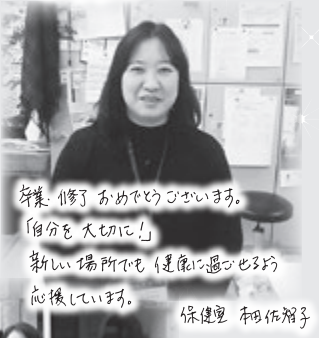 卒業・修了 おめでとうございます。
「自分を 大切に!」
新しい場所でも 健康に過ごせるよう
応援しています。
保健室 本田 佐智子